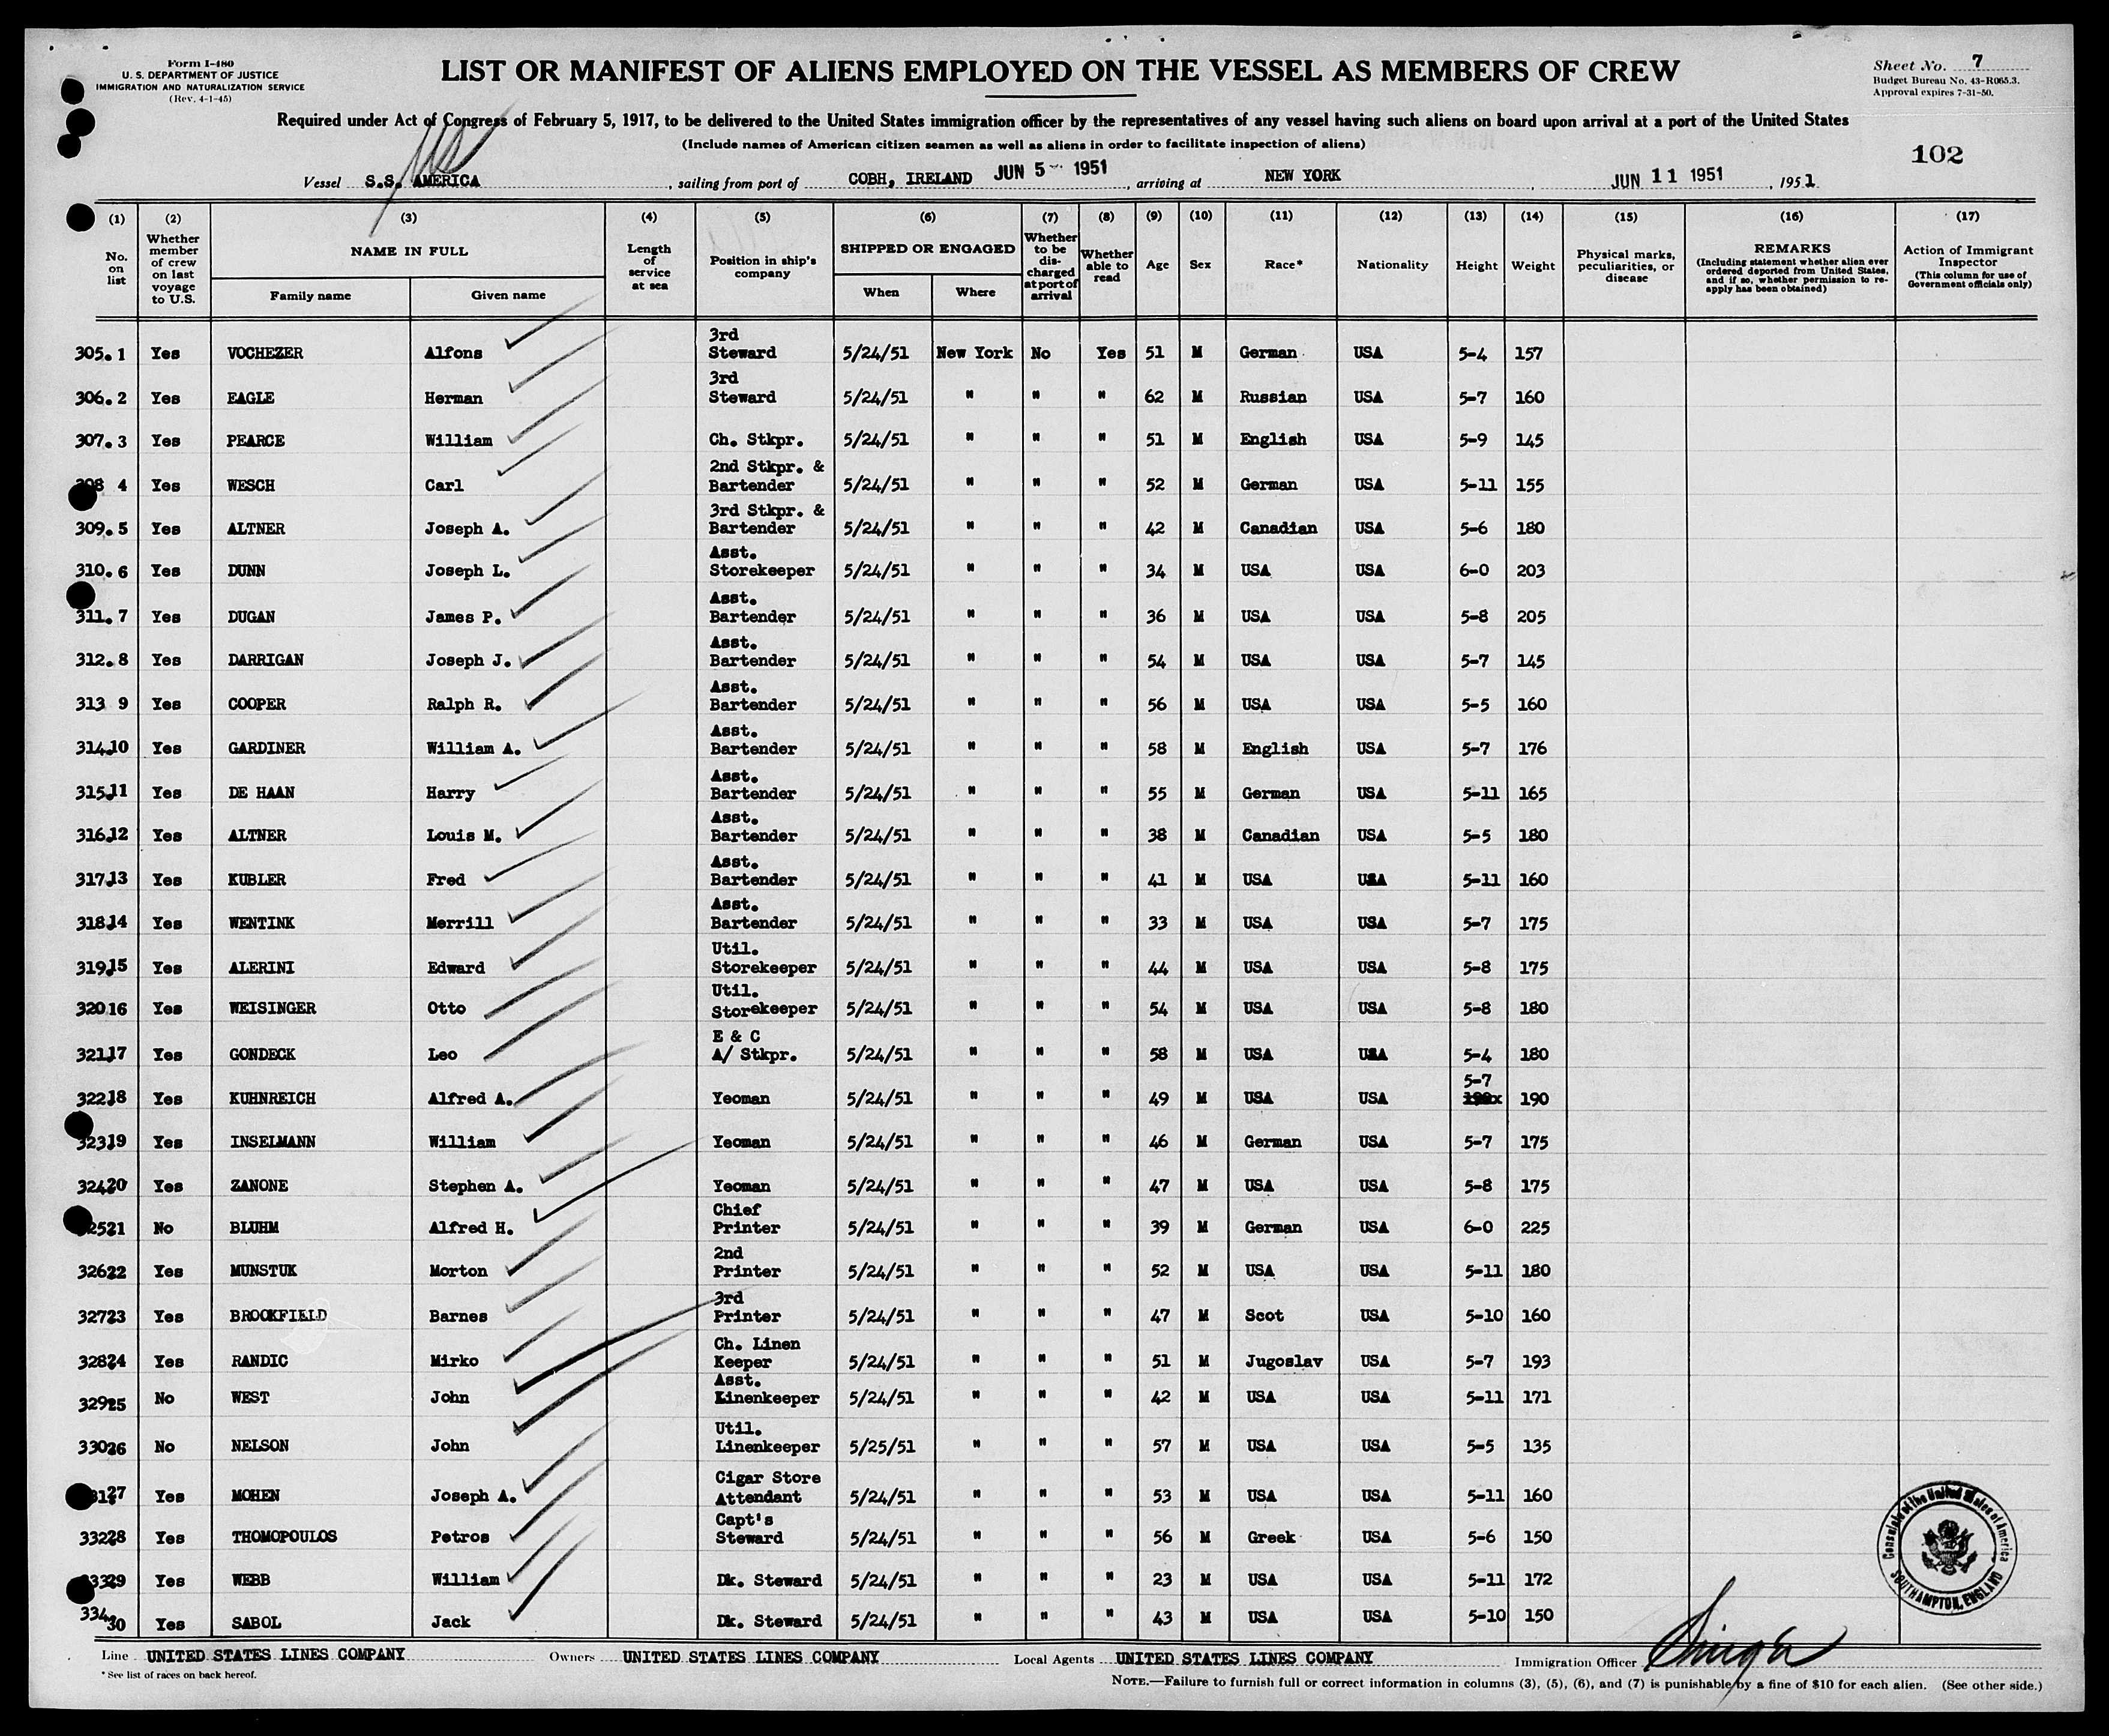 Form I-480
U. S. DEPARTMENT OF JUSTICE
IMMIGRATION AND NATURALIZATION SERVICE
(Rev. 4-1-45)
LIST OR MANIFEST OF ALIENS EMPLOYED ON THE VESSEL AS MEMBERS OF CREW
Sheet No. 7
Budget Bureau No. 43-R065.3.
Approval expires 7-31-50.
Required under Act of Congress of February 5, 1917, to be delivered to the United States immigration officer by the representatives of any vessel having such aliens on board upon arrival at a port of the United States
(Include names of American citizen seamen as well as aliens in order to facilitate inspection of aliens)
102
Vessel S.S. AMERICA, sailing from port of COBH, IRELAND JUN 5 - 1951, arriving at NEW YORK, JUN 11 1951, 1951
(1) (2) (3) (4) (5) (6) (7) (8) (9) (10) (11) (12) (13) (14) (15) (16) (17)
No. on list
Whether member of crew on last voyage to U.S.
NAME IN FULL
Family name
Given name
Length of service at sea
Position in ship's company
SHIPPED OR ENGAGED
When
Where
Whether to be discharged at port of arrival
Whether able to read
Age
Sex
Race*
Nationality
Height
Weight
Physical marks, peculiarities, or disease
REMARKS
(Including statement whether alien ever ordered deported from United States, and if so, whether permission to re-apply has been obtained)
Action of Immigrant Inspector
(This column for use of Government officials only)
305. 1 Yes VOCHEZER Alfons 3rd Steward 5/24/51 New York No Yes 51 M German USA 5-4 157
306. 2 Yes EAGLE Herman 3rd Steward 5/24/51 " " " 62 M Russian USA 5-7 160
307. 3 Yes PEARCE William Ch. Stkpr. 5/24/51 " " " 51 M English USA 5-9 145
308 4 Yes WESCH Carl 2nd Stkpr. & Bartender 5/24/51 " " " 52 M German USA 5-11 155
309. 5 Yes ALTNER Joseph A. 3rd Stkpr. & Bartender 5/24/51 " " " 42 M Canadian USA 5-6 180
310. 6 Yes DUNN Joseph L. Asst. Storekeeper 5/24/51 " " " 34 M USA USA 6-0 203
311. 7 Yes DUGAN James P. Asst. Bartender 5/24/51 " " " 36 M USA USA 5-8 205
312. 8 Yes DARRIGAN Joseph J. Asst. Bartender 5/24/51 " " " 54 M USA USA 5-7 145
313 9 Yes COOPER Ralph R. Asst. Bartender 5/24/51 " " " 56 M USA USA 5-5 160
314.10 Yes GARDINER William A. Asst. Bartender 5/24/51 " " " 58 M English USA 5-7 176
315.11 Yes DE HAAN Harry Asst. Bartender 5/24/51 " " " 55 M German USA 5-11 165
316.12 Yes ALTNER Louis M. Asst. Bartender 5/24/51 " " " 38 M Canadian USA 5-5 180
317.13 Yes KUBLER Fred Asst. Bartender 5/24/51 " " " 41 M USA USA 5-11 160
318.14 Yes WENTINK Merrill Asst. Bartender 5/24/51 " " " 33 M USA USA 5-7 175
319.15 Yes ALERINI Edward Util. Storekeeper 5/24/51 " " " 44 M USA USA 5-8 175
320 16 Yes WEISINGER Otto Util. Storekeeper 5/24/51 " " " 54 M USA USA 5-8 180
321.17 Yes GONDECK Leo E & C A/ Stkpr. 5/24/51 " " " 58 M USA USA 5-4 180
322.18 Yes KUHNREICH Alfred A. Yeoman 5/24/51 " " " 49 M USA USA 5-7 190
323.19 Yes INSELMANN William Yeoman 5/24/51 " " " 46 M German USA 5-7 175
324.20 Yes ZANONE Stephen A. Yeoman 5/24/51 " " " 47 M USA USA 5-8 175
21 No BLUHM Alfred H. Chief Printer 5/24/51 " " " 39 M German USA 6-0 225
326.22 Yes MUNSTUK Morton 2nd Printer 5/24/51 " " " 52 M USA USA 5-11 180
327.23 Yes BROOKFIELD Barnes 3rd Printer 5/24/51 " " " 47 M Scot USA 5-10 160
328.24 Yes RANDIC Mirko Ch. Linen Keeper 5/24/51 " " " 51 M Jugoslav USA 5-7 193
329.25 No WEST John Asst. Linenkeeper 5/24/51 " " " 42 M USA USA 5-11 171
330.26 No NELSON John Util. Linenkeeper 5/25/51 " " " 57 M USA USA 5-5 135
27 Yes MOHEN Joseph A. Cigar Store Attendant 5/24/51 " " " 53 M USA USA 5-11 160
332.28 Yes THOMOPOULOS Petros Capt's Steward 5/24/51 " " " 56 M Greek USA 5-6 150
29 Yes WEBB William Dk. Steward 5/24/51 " " " 23 M USA USA 5-11 172
334. 30 Yes SABOL Jack Dk. Steward 5/24/51 " " " 43 M USA USA 5-10 150
Consulate of the United States of America
SOUTHAMPTON, ENGLAND
Line UNITED STATES LINES COMPANY Owners UNITED STATES LINES COMPANY Local Agents UNITED STATES LINES COMPANY Immigration Officer
* See list of races on back hereof.
NOTE.—Failure to furnish full or correct information in columns (3), (5), (6), and (7) is punishable by a fine of $10 for each alien. (See other side.)